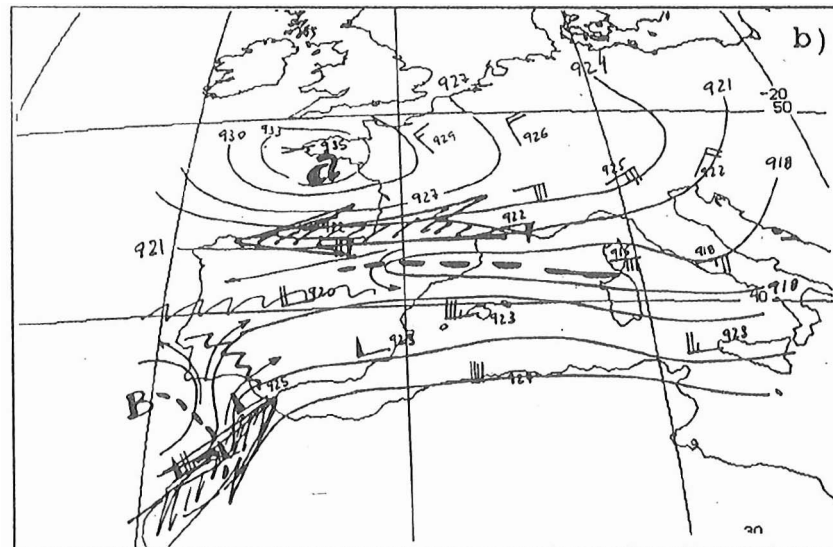 b)
924
927
921
-20
50
930
933
935
929
926
925
922
918
927
922
922
921
916
918
918
920
40
923
923
928
925
B
30